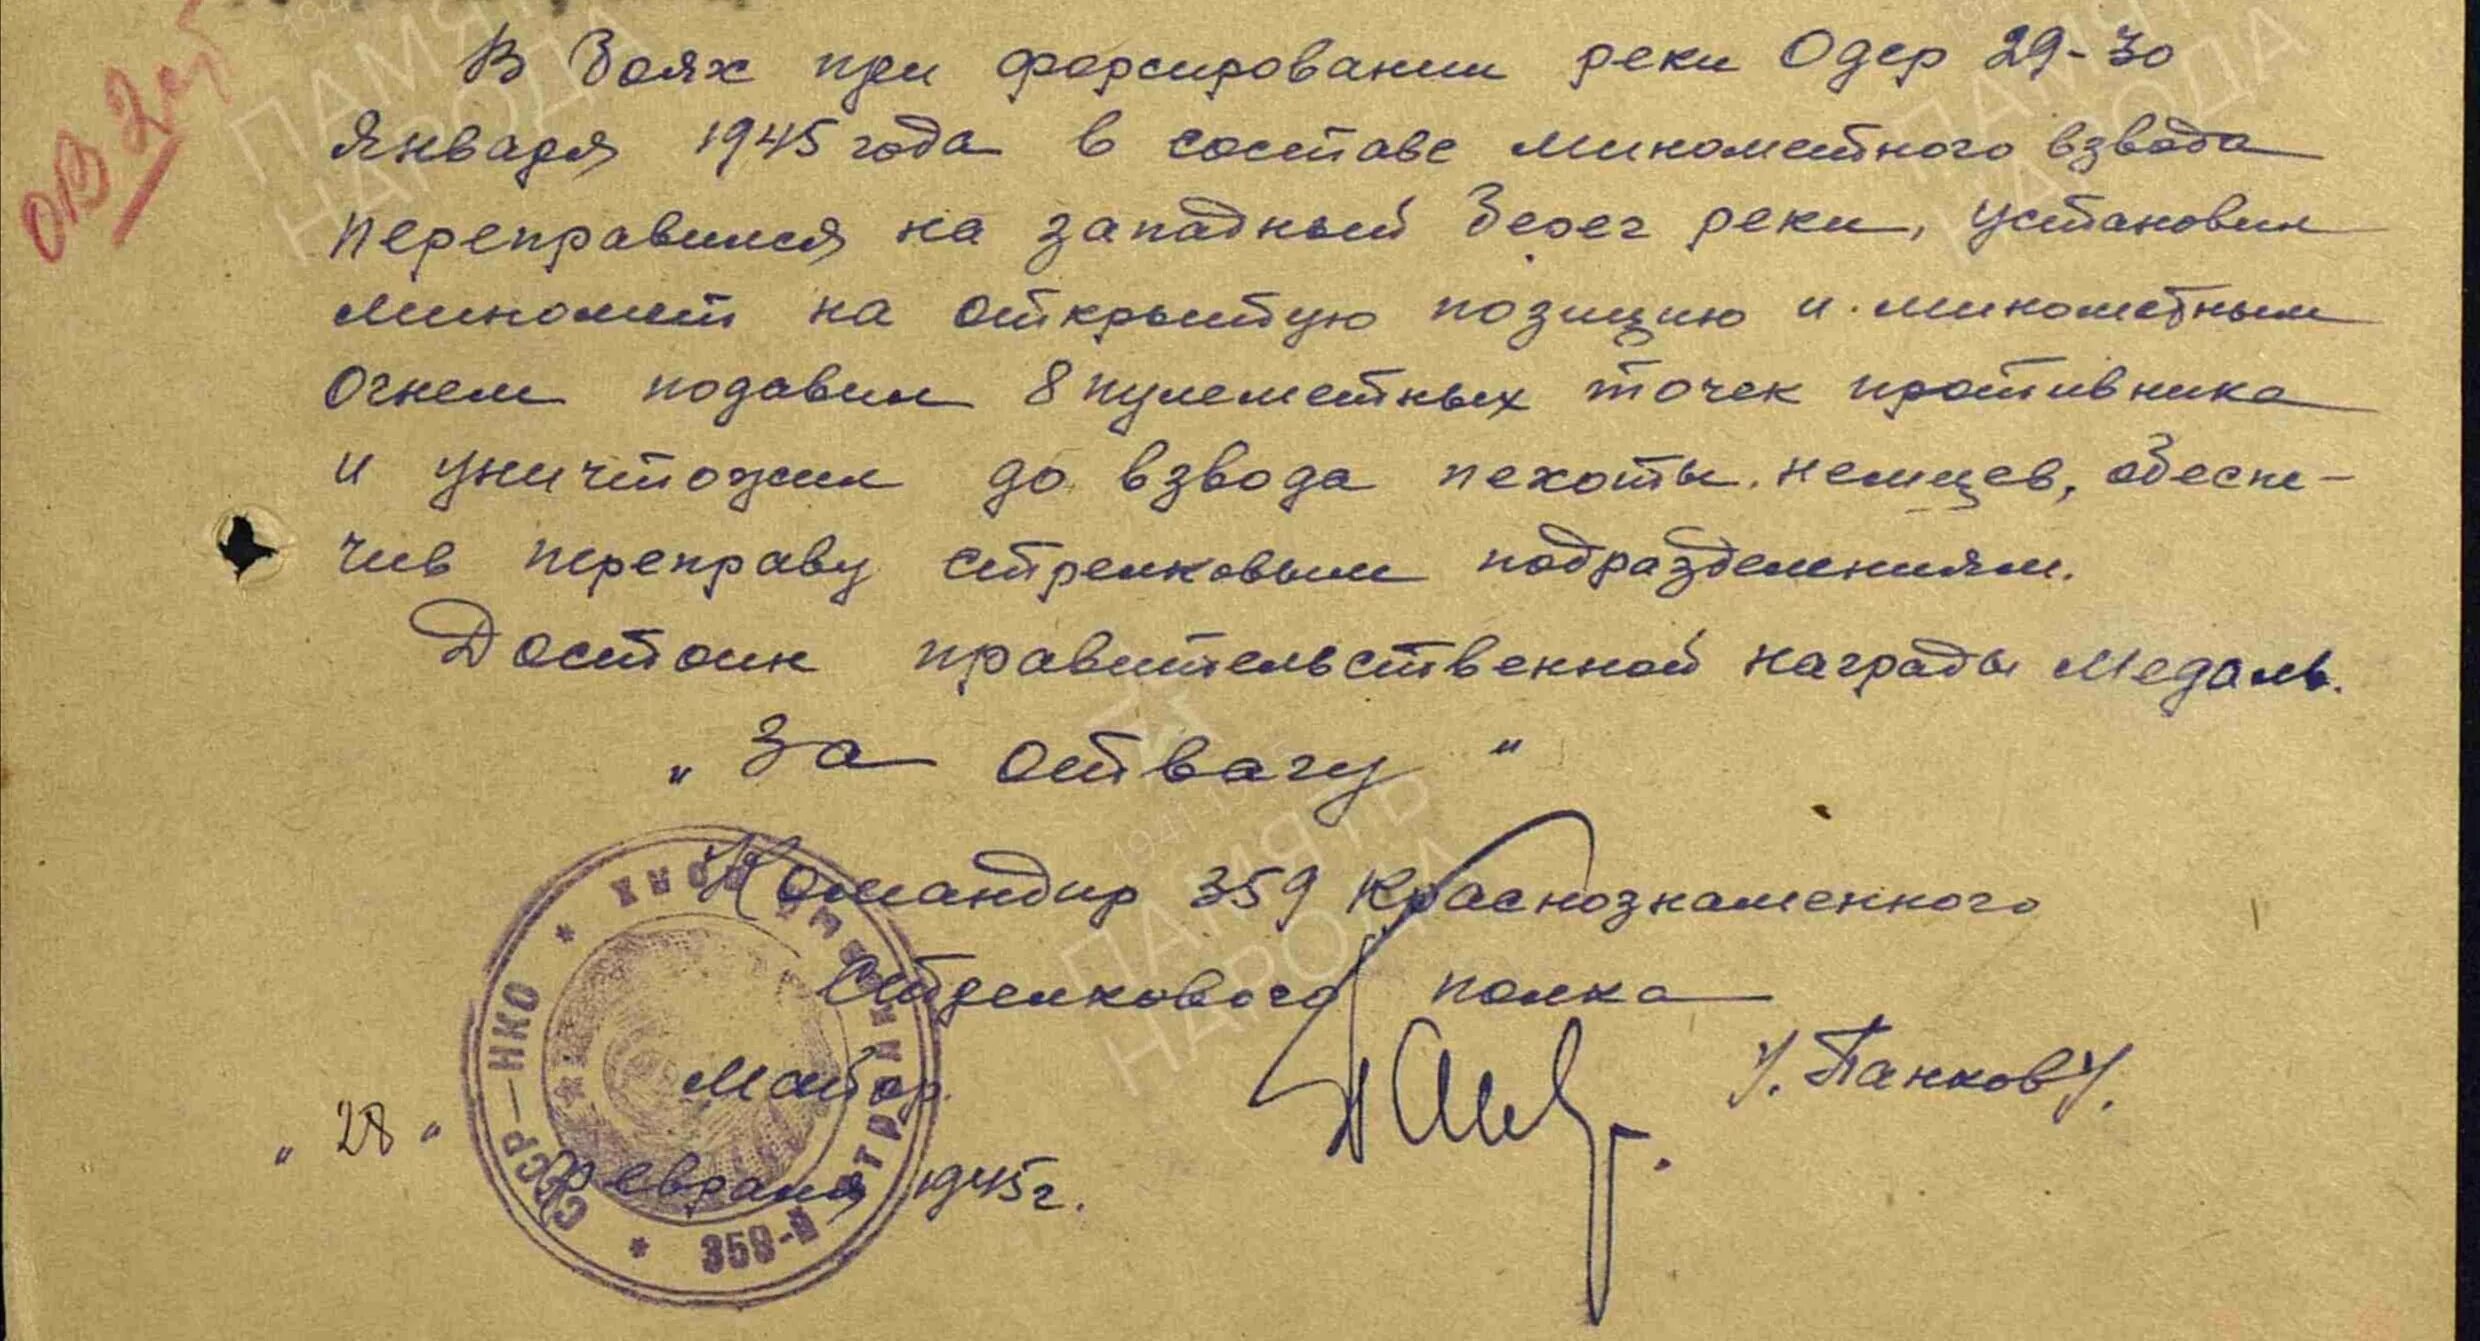 В боях при форсировании реки Одер 29-30
Января 1945 года в составе минометного взвода
переправился на западный берег реки, установил
миномет на открытую позицию и минометным
Огнем подавил 8 пулеметных точек противника
и уничтожил до взвода пехоты немцев, обеспе-
чив переправу стрелковым подразделениям.
Достоин правительственной награды Медаль.
„За отвагу"
Командир 359 Краснознаменного
Стрелкового полка
Майор.
/. Панков /.
„28"
февраля 1945 г.
СССР—НКО * 359-й СТРЕЛКОВЫЙ ПОЛК *
ПАМЯТЬ
НАРОДА
1941 1945
ПАМЯТЬ
НАРОДА
ПАМЯТЬ
НАРОДА